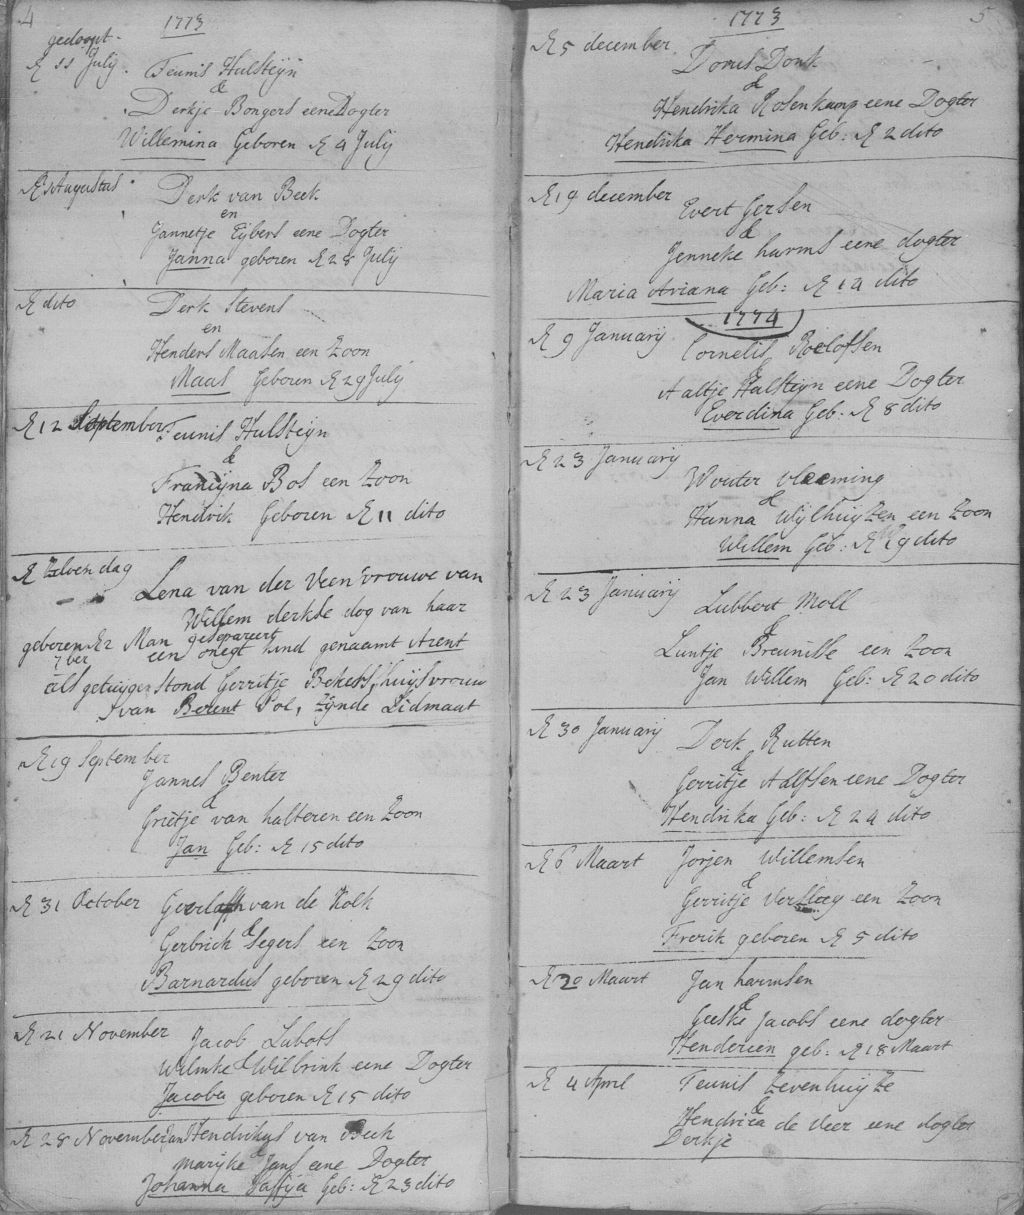 4
1773
gedoopt.
11 July. Teunis Hulsteyn
&
Derkje Bongers eene Dogter
Willemina Geboren 4 Julij
Augustus Derk van Beek
en
Jannetje Eijbers eene Dogter
Janna geboren 28 Julij
dito Derk Stevens
en
Henders Maasen een Zoon
Maas Geboren 29 Julij
12 September Teunis Hulsteijn
&
Francijna Bos een Zoon
Hendrik Geboren 11 dito
Zelven dag
Lena van der Veen vrouwe van
Willem derkse dog van haar
Man gesepareert
geboren 2 7ber een onegt kind genaamt Arent
als getuijgen stond Gerritje Bekers, huijsvrouw
van Berent Pol, zijnde Lidmaat
19 September
Jannes Benter
&
Grietje van halteren een Zoon
Jan Geb: 15 dito
31 October van de Kolk
&
Gerbrich Segers een Zoon
Barnardus geboren 29 dito
21 November Jacob Lubots
&
Wilmke Wilbrink eene Dogter
Jacoba geboren 15 dito
28 November Jan Hendrikus van Beek
&
marijke Jans eene Dogter
Johanna Geb: 23 dito
1773
5
5 december
Dorus Donk
&
Hendrika Rosenkamp eene Dogter
Hendrika Hermina Geb: 2 dito
19 december
Evert Gersen
&
Jenneke harms eene dogter
Maria Ariana Geb: 14 dito
1774
9 Januarij Cornelis Roelofsen
&
Aaltje Hulsteijn eene Dogter
Everdina Geb. 8 dito
23 Januarij
Wouter vleeming
&
Hanna Wijlhuijzen een Zoon
Willem Geb: 19 dito
23 Januarij
Lubbert Moll
&
Luntje Breunisse een Zoon
Jan Willem Geb: 20 dito
30 Januarij
Derk Rutten
&
Gerritje Adlfsen eene Dogter
Hendrika Geb: 24 dito
6 Maart Jorjen Willemsen
&
Gerritje Versteeg een Zoon
Frerik geboren 5 dito
20 Maart Jan harmsen
&
Geeske Jacobs eene dogter
Hendersien geb: 18 Maart
4 April Teunis Zevenhuijze
&
Hendrica de Veer eene dogter
Derkje